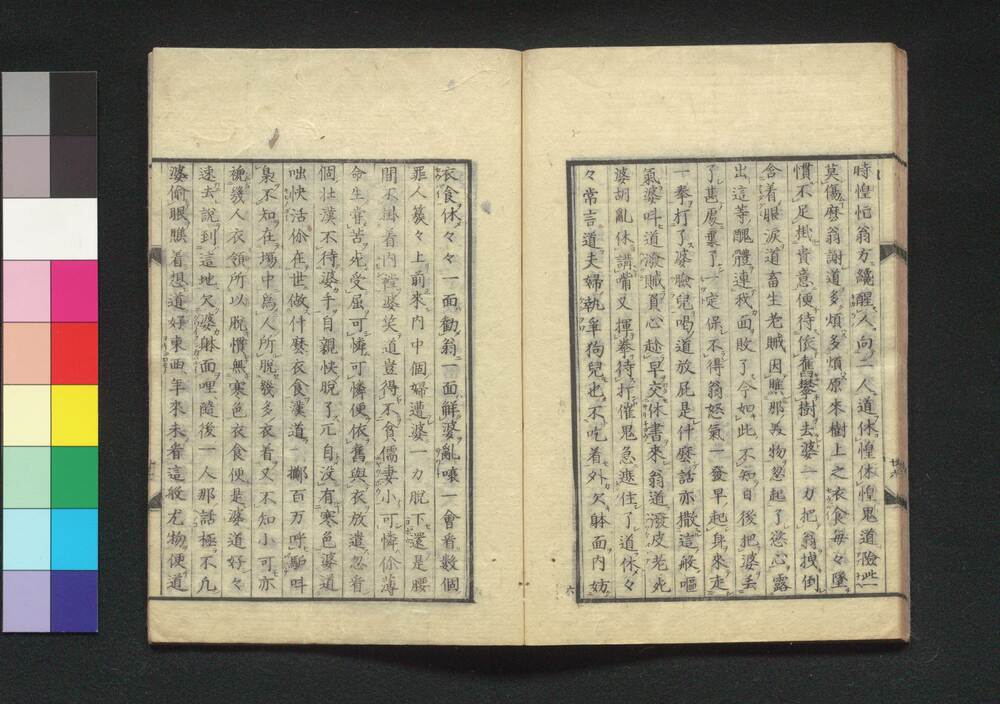 時惶怕翁方纔醒人向一人道休惶休惶鬼道險些
莫傷麽翁謝道多煩多煩原來樹上之衣食每々墜
慣不足掛貴意便待依舊攀樹去婆一力把翁拽倒
含着眼淚道畜生老賊因瞧那美物忽起了慾心露
出這等醜體連我面敗了今如此不知日後把婆丢
了甚處裏了一定保不得翁怒氣一發早起身來走
一拳打了婆臉兒喝道放屁是什麼話亦撒這般嘔
氣婆叫道潑賊負心趁早交休書來翁道潑皮老死
婆胡亂休講嘴又揮拳待打催鬼急遮住了道休々
々常言道夫婦執爭狗兒也不吃着外欠躰面內妨
衣食休々々一面勸翁一面解婆亂嚷一會看數個
罪人簇々上前來內中個婦遭婆一力脫下還是腰
間不掛着內裙婆笑道豈得不貧儒妻小可憐你薄
命生當苦死受屈可憐可憐便依舊與衣放遣忽看
個壯漢不待婆手自親快脫了元自没有寒色婆道
咄快活你在世做什麽衣食漢道一擲百万呼駈叫
梟不知在場中爲人所脫幾多衣着又不知小可亦
褫幾人衣領所以脫慣無寒色衣食便是婆道好々
速去說到這地欠婆躰面哩隨後一人那話極不凢
婆偷眼瞧着想道好東西年來未看這般尤物便道